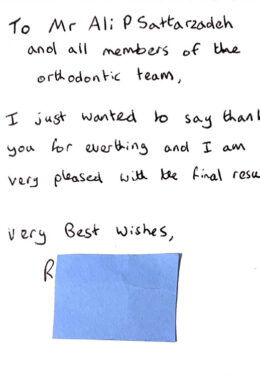 To Mr Ali P Sattarzadeh
and all members of the
orthodontic team,
I just wanted to say than
you for everthing and I am
very pleased with the final resu
very Best wishes,
R